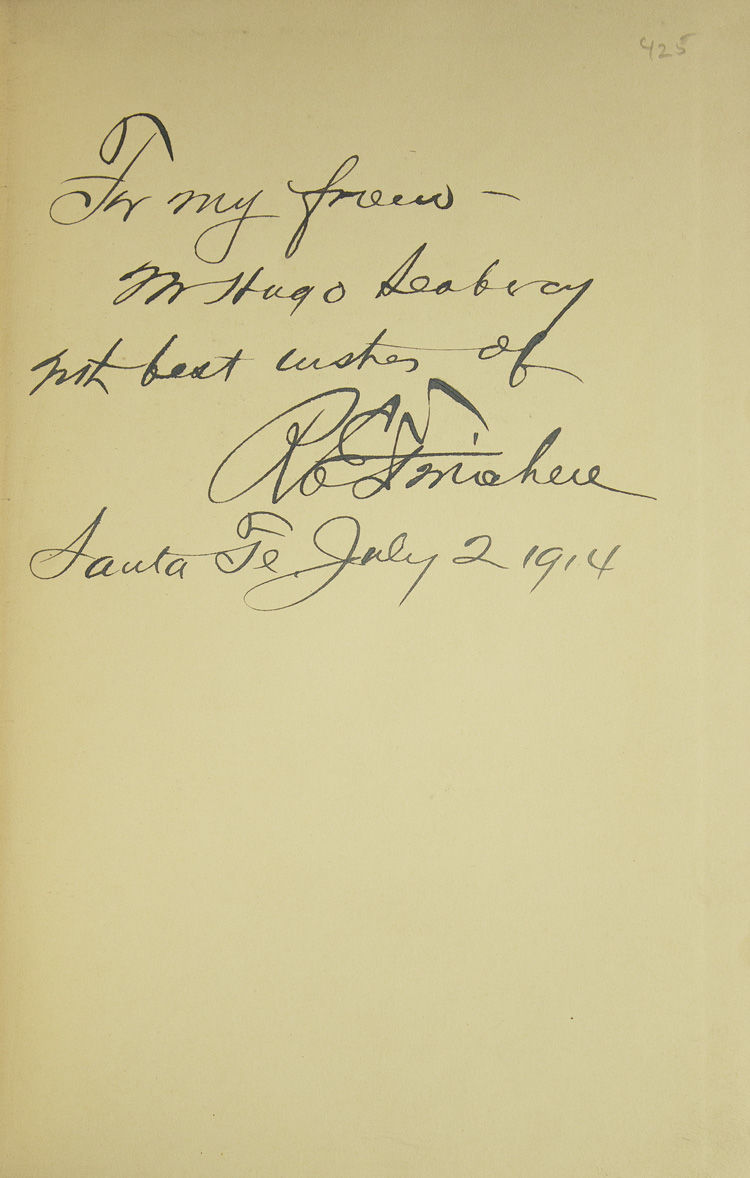 425
For my friend —
Mr Hugo Seaberg
with best wishes of
R E Twitchell
Santa Fe July 2 1914